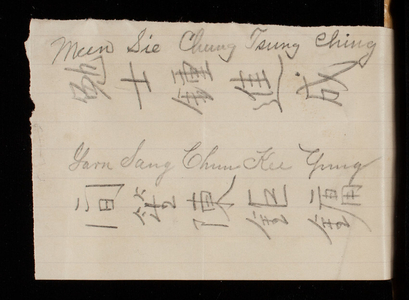 Meen Sie Chung Tsung Ching
勉士鍾進成
Yarn Sang Chun Kee Yung
生陳鉅鏞